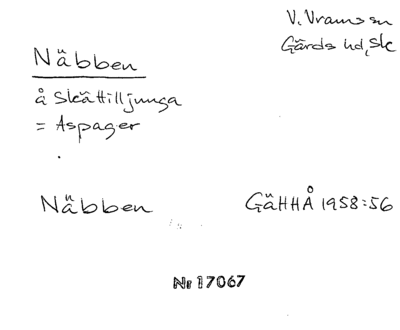 V. Vrams sn
Gärds hd, Sk
Näbben
å Skättilljunga
= Aspager
Näbben
GäHHÅ 1958:56
Nr 17067